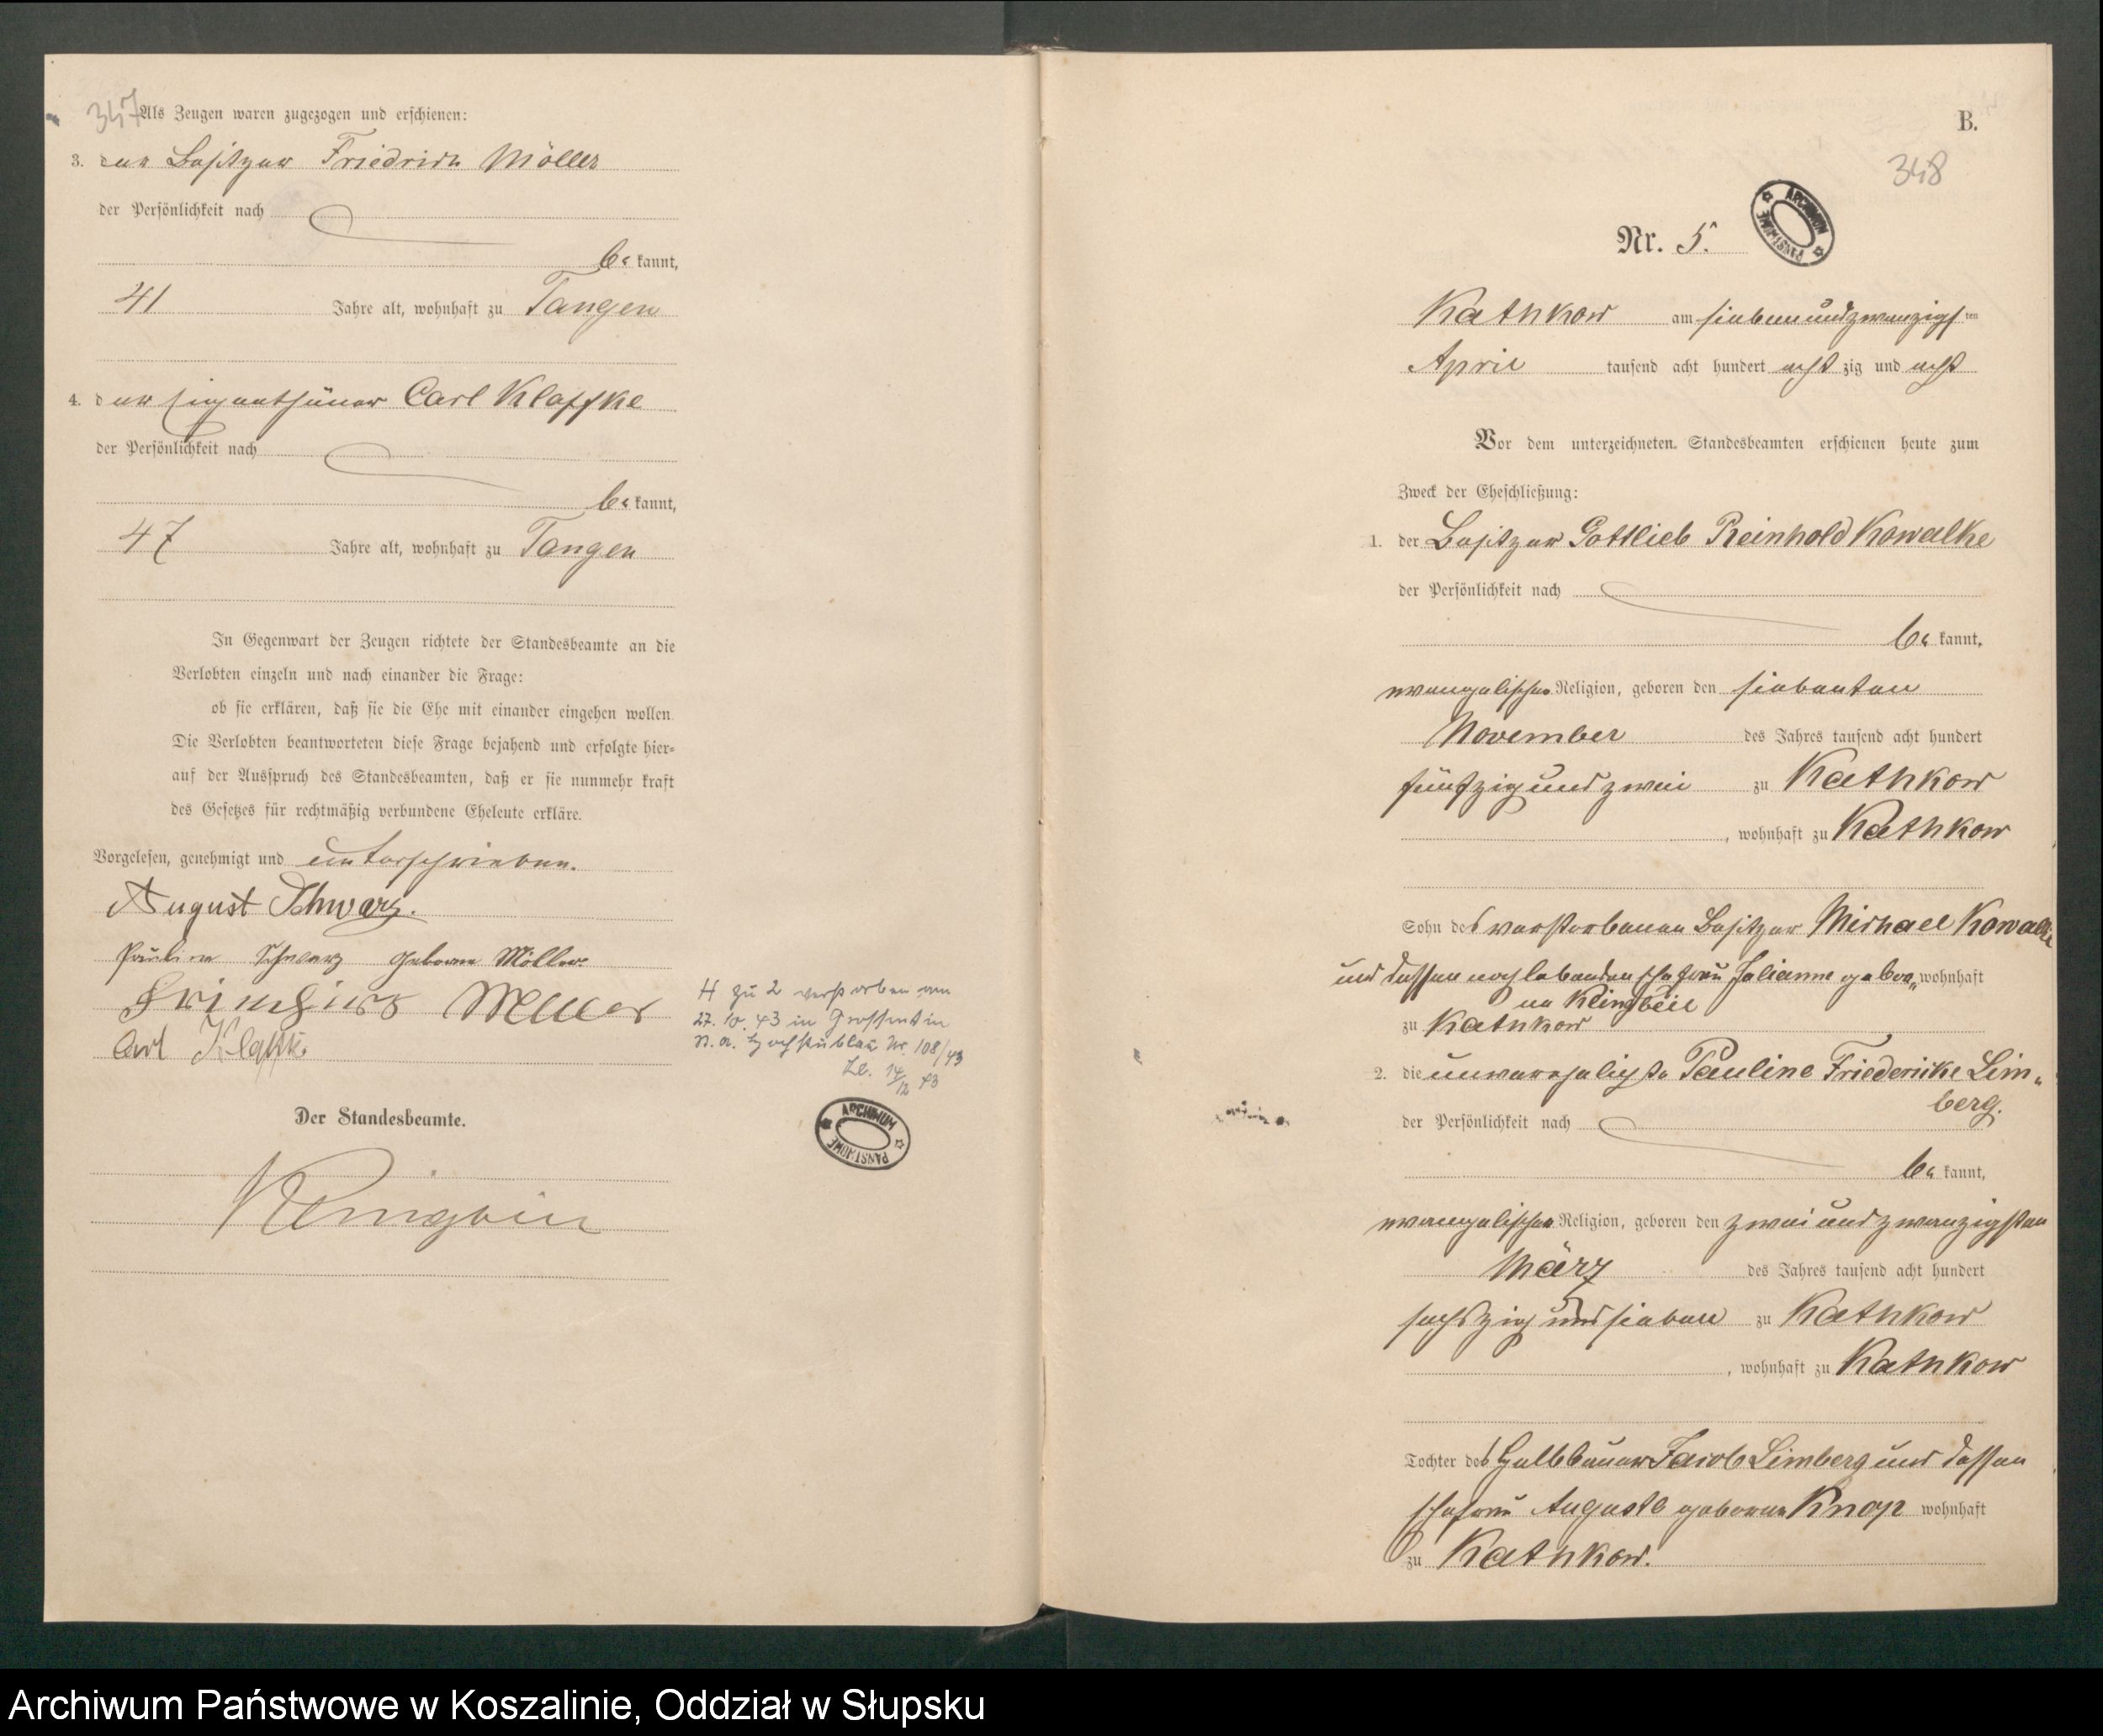 347
Als Zeugen waren zugezogen und erschienen:
3. der Besitzer Friedrich Möller
der Persönlichkeit nach
be kannt,
41 Jahre alt, wohnhaft zu Tangen
4. der Eigenthümer Carl Klaffke
der Persönlichkeit nach
be kannt,
47 Jahre alt, wohnhaft zu Tangen
In Gegenwart der Zeugen richtete der Standesbeamte an die
Verlobten einzeln und nach einander die Frage:
ob sie erklären, daß sie die Ehe mit einander eingehen wollen.
Die Verlobten beantworteten diese Frage bejahend und erfolgte hier-
auf der Ausspruch des Standesbeamten, daß er sie nunmehr kraft
des Gesetzes für rechtmäßig verbundene Eheleute erkläre.
Vorgelesen, genehmigt und unterschrieben.
August Schwarz.
Pauline Schwarz geborne Möller
Möller
Carl Klaffke
H zu 2 verstorben am
27. 10. 43 in
St. A. Nr. 108/43
14/12 43
Der Standesbeamte.
ARCHIWUM PAŃSTWOWE
B.
348
ARCHIWUM PAŃSTWOWE
Nr. 5.
Kathkow am siebenundzwanzigsten
April tausend acht hundert acht zig und acht
Vor dem unterzeichneten Standesbeamten erschienen heute zum
Zweck der Eheschließung:
1. der Besitzer Gottlieb Reinhold Kowalke
der Persönlichkeit nach
be kannt,
evangelischer Religion, geboren den siebenten
November des Jahres tausend acht hundert
fünfzig und zwei zu Kathkow
, wohnhaft zu Kathkow
Sohn des verstorbenen Besitzer Michael Kowalke
und dessen noch lebenden Ehefrau Julianne gebor„ wohnhaft
ne Klingbeil
zu Kathkow
2. die unverehelichte Pauline Friedericke Lim„
berg.
der Persönlichkeit nach
be kannt,
evangelischer Religion, geboren den zwei und zwanzigsten
März des Jahres tausend acht hundert
sechszig und sieben zu Kathkow
, wohnhaft zu Kathkow
Tochter des Halbbauer Jacob Limberg und dessen
Ehefrau Auguste geborne Knop wohnhaft
zu Kathkow.
Archiwum Państwowe w Koszalinie, Oddział w Słupsku